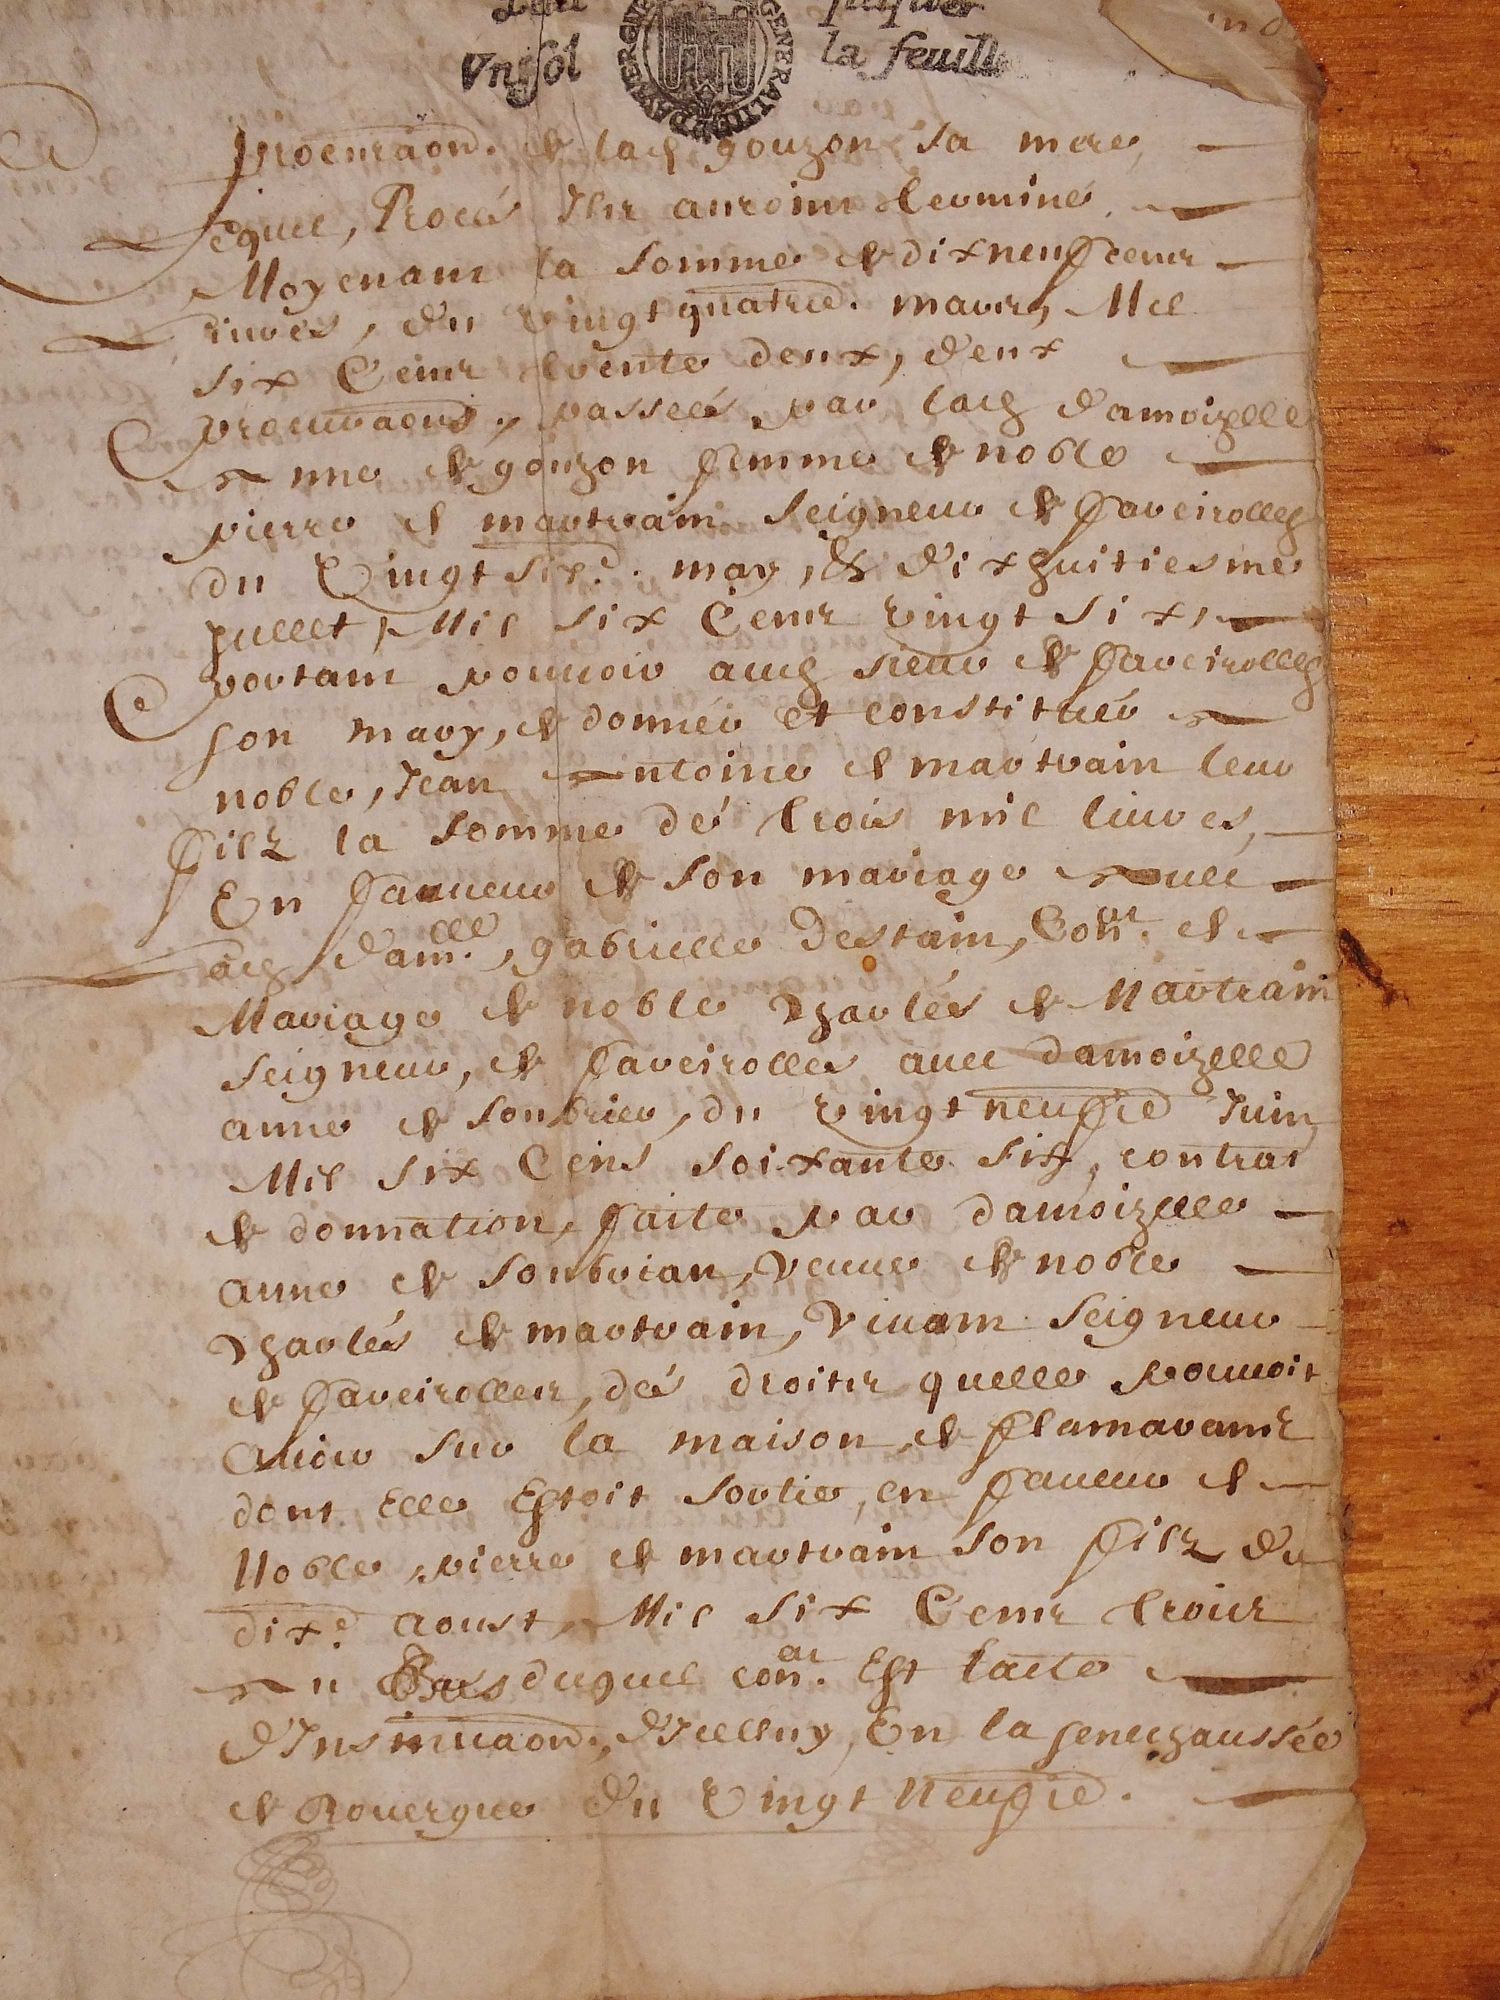 Vn sol la feuille
GENERALITE D'AUVERGNE
procuraon. de lad. gouzon sa mere,
equel, Procés Ilz auroint terminé
Moyenant la somme de dix neuf cenz
liures, du vingt quatrie. mars, Mil
six Cenz trente deux, deux
procuraons, passeés par lad. Damoizelle
Anne de gouzon femme de noble
pierre de martrain seigneur de faveirolles
du vingt sixe. may, & dixhuitiesme
Juillet, Mil six Cenz vingt six,
portant pouuoir aud. sieur de faveirolles
son mary, de donner et constituer
noble, Jean Antoine de martrain leur
filz la somme de trois mil liures,
En faueur de son mariage Auec
lad. Damlle., gabrielle Destain, Cont. de
Mariage de noble Charlés de Martrain
Seigneur, de faveirolles auec damoizelle
anne de sonbrier, du vingt neufie Juin
Mil six Cens soixante six, contrat
de donnation, faite par damoizelle
anne de sonbrian, veuue de noble
Charlés de martrain, Viuant seigneur
de faveirolles, dés droitz quelle pouuoit
auoir sur la maison, de flamarans
dont Elle Estoit sortie, en faueur de
Noble, pierre de martrain son filz du
dixe. aoust, Mil six Cenz trois
Au Bas duquel conat. Est lacte
d'Insinuaon., d'Icelluy, En la senechaussée
de Rouergue du vingt Neufie.